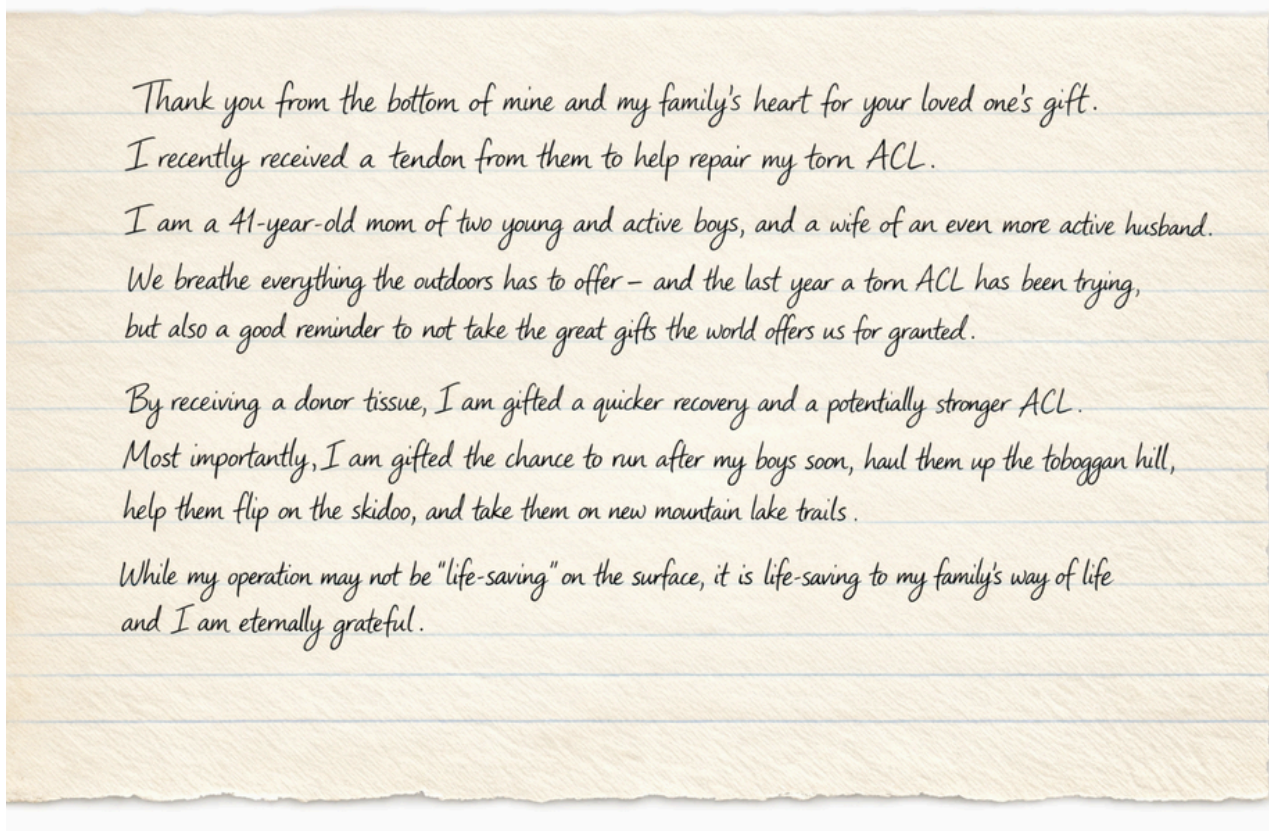 Thank you from the bottom of mine and my family's heart for your loved one's gift.
I recently received a tendon from them to help repair my torn ACL.
I am a 41-year-old mom of two young and active boys, and a wife of an even more active husband.
We breathe everything the outdoors has to offer – and the last year a torn ACL has been trying,
but also a good reminder to not take the great gifts the world offers us for granted.
By receiving a donor tissue, I am gifted a quicker recovery and a potentially stronger ACL.
Most importantly, I am gifted the chance to run after my boys soon, haul them up the toboggan hill,
help them flip on the skidoo, and take them on new mountain lake trails.
While my operation may not be "life-saving" on the surface, it is life-saving to my family's way of life
and I am eternally grateful.